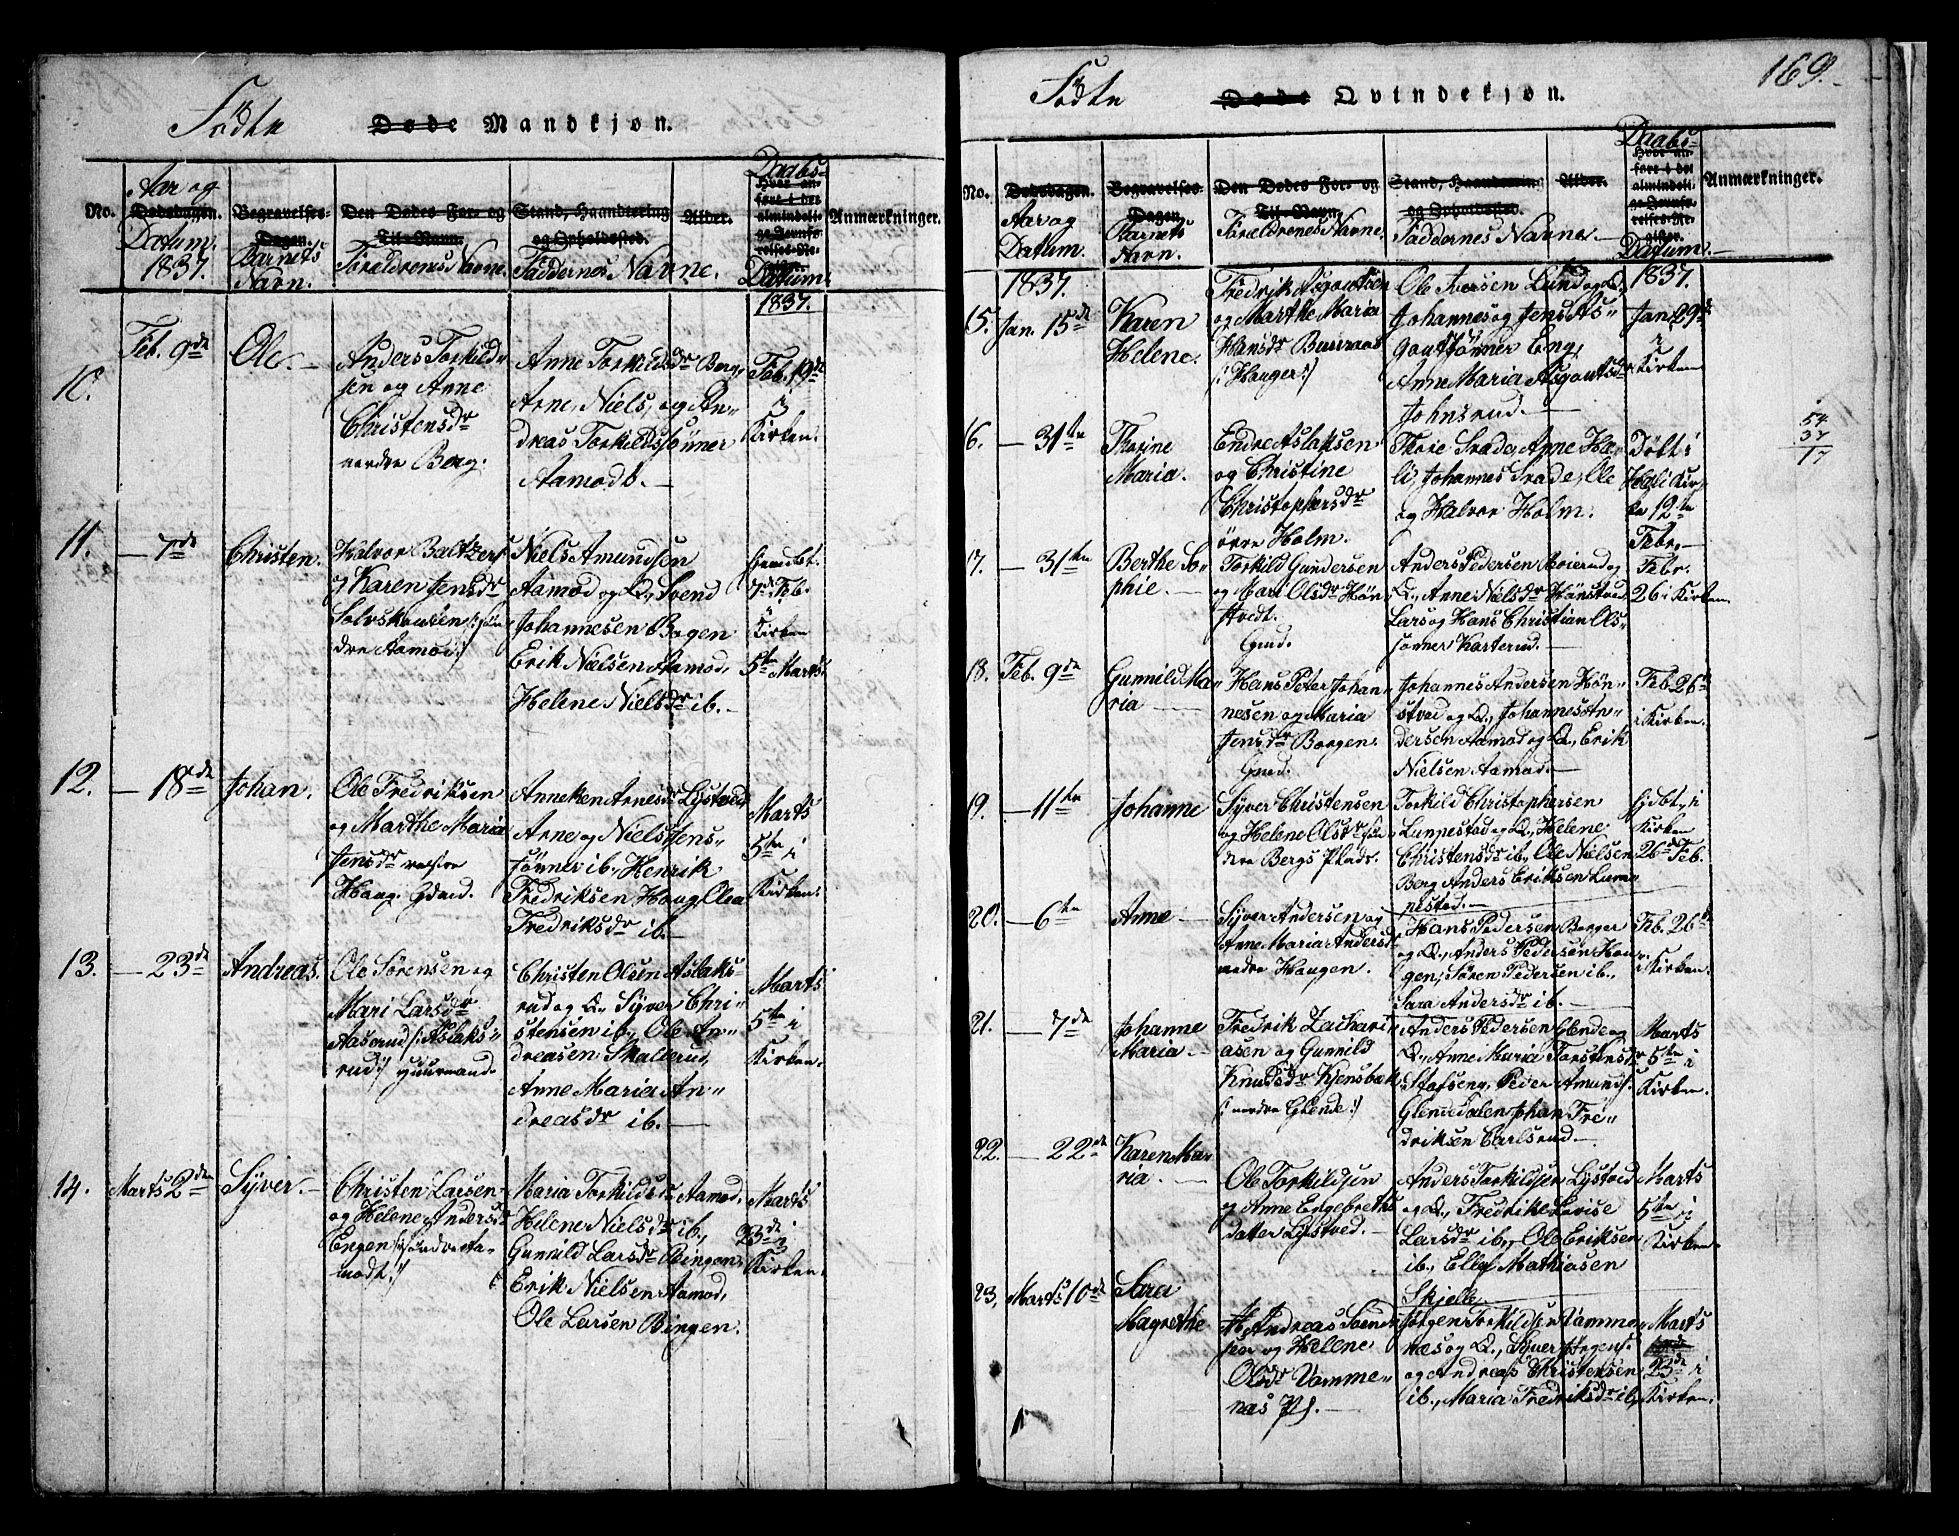 Födte Døde Mandkjøn.
No.
Aar og
Dødsdagen.
Datum.
1837.
Begravelses-
Dagen.
Barnets
Navn.
Den Dødes For- og
Til-Navn.
Forældrenes Navne.
Stand, Haandtering
og Opholdssted.
Faddernes Navne.
Alder.
Daabs-
Hvor an-
ført i det
almindeli-
ge Jevnfø-
relses-Re-
gister.
Datum.
1837.
Anmærkninger.
10.
Feb. 9de
Ole.
Anders Torkild-
sen og Anne
Christensdr
nordre Berg.
Anne Torkildsdr Berg,
Arne, Niels, og An-
dreas Torkildssønner
Aamodt.
Feb. 19de
i
Kirken.
11.
7de
Christen.
Halvor Baltzers
og Karen Jensdr
Solvskousen /: søn
dre Aamod :/
Niels Amundsen
Aamod og Q., Svend
Johannesen Bogen
Erik Nielsen Aamod,
Helene Nielsdr ib.
hjemdbt.
7de Feb.
i
Kirken
5te Marts.
12.
18de
Johan.
Ole Fredriksen
og Marthe Maria
Jensdr
Houg. Gdmd.
Anneken Arnesdr Lystved
Arne og Niels Jens-
sønner ib., Henrik
Fredriksen Houg, Olea
Fredriksdr ib.
Marts
5te i
Kirken.
13.
23de
Andreas.
Ole Sørensen og
Mari Larsdr
Aaserud /: Aslaks-
rud :/
Christen Olsen Aslaks-
rud og Q., Syver Chri-
stensen ib., Ole An-
dreasen Skallerud,
Anne Maria An-
dreasdr ib.
Marts
5te i
Kirken.
14.
Marts 2den
Syver.
Christen Larsen
og Helene Andersdr
Engen /: søndre Aa-
modt :/
Maria Torkildsdr Aamod,
Helene Nielsdr ib.,
Gunnild Larsdr Bingen,
Erik Nielsen Aamod,
Ole Larsen Bingen.
Marts
23de i
Kirken.
169.
Födte Døde Qvindekjøn.
No.
Dødsdagen.
Aar og
Datum.
Begravelses-
Dagen.
Barnets
Navn.
Den Dødes For- og
Til-Navn.
Forældrenes Navne.
Stand, Haandtering
og Opholdssted.
Faddernes Navne.
Alder.
Daabs-
Hvor an-
ført i det
almindeli-
ge Jevnfø-
relses-Re-
gister.
Datum.
Anmærkninger.
1837.
1837.
15.
Jan. 15de
Karen
Helene.
Fredrik Asgoutsen
og Marthe Maria
Hansdr Buraas
/: Hauger :/
Ole Iversen Lund og Q.,
Johannes og Jens As-
goutsønner Eng,
Anne Maria Asgoutsdr
Johnsrud.
Jan. 29de
i
Kirken
16.
31te
Thorine
Maria.
Endre Aslaksen
og Christine
Christophersdr
Holm.
Thore Srade, Anne Hæ-
li, Johannes Srade, Ole
og Halvor Holm.
Døbt i
Høli Kir
ke 12te
Febr.
54
37
17
17.
31te
Berthe So-
phie.
Torkild Gundersen
og Mari Olsdr Høn
stvedt.
Gmd.
Anders Pedersen Moierud og
Q., Anne Nielsdr Hønstved,
Lars og Hans Christian Ols-
sønner Kasterud.
Febr.
26 i Kirken
18.
Feb. 9de
Gunnild Ma-
ria
Hans Peter Johan-
nesen og Maria
Jensdr Borgen.
Gmd.
Johannes Andersen Høn-
stved og Q., Johannes An-
dersen Aamod og Q., Erik
Nielsen Aamod.
Feb. 26de
i Kirken.
19.
11te
Johanne
Syver Christensen
og Helene Olsdr søn
dre Bergs Plads.
Torkild Christophersen
Lunnestad og Q., Helene
Christensdr ib., Ole Nielsen
Berg Anders Eriksen Lun-
nestad.
hjdbt, i
Kirken
26de Feb.
20.
6te
Anne
Syver Andersen og
Anne Maria Andersdr
nedre Haugen.
Hans Pedersen Berger
og Q., Anders Pedersen Hou-
gen, Søren Pedersen ib.,
Sara Andersdr ib.
Feb. 26de
i Kirken.
21.
7de
Johanne
Maria
Fredrik Zachari-
asen og Gunnild
Knudsdr Kjensbak
/: nordre Glende :/
Anders Pedersen Glende og
Q., Anne Maria Torstensdr
Stofseng, Peder Amunds.
Glennedalen, Johan Fre-
driksen Carlsrud.
Marts
5te i
Kirken.
22.
22de
Karen Ma-
ria.
Ole Torkildsen
og Anne Engebreths
datter Lystved.
Anders Torkildsen Lystved
og Q., Fredrike Lovise
Larsdr ib., Ole Eriksen
ib., Ellef Mathiasen
Skjelle.
Marts
5te i
Kirken.
23.
Marts 10de
Sara
Magrethe
Andreas Svend
sen og Helene
Olsdr Vamme-
næs Pl.
Jørgen Torkildsen Vamme-
næs og Q., Syver Jørgens.
og Andreas Christensen
ib., Maria Fredriksdr ib.
Marts
23de i
Kirken.